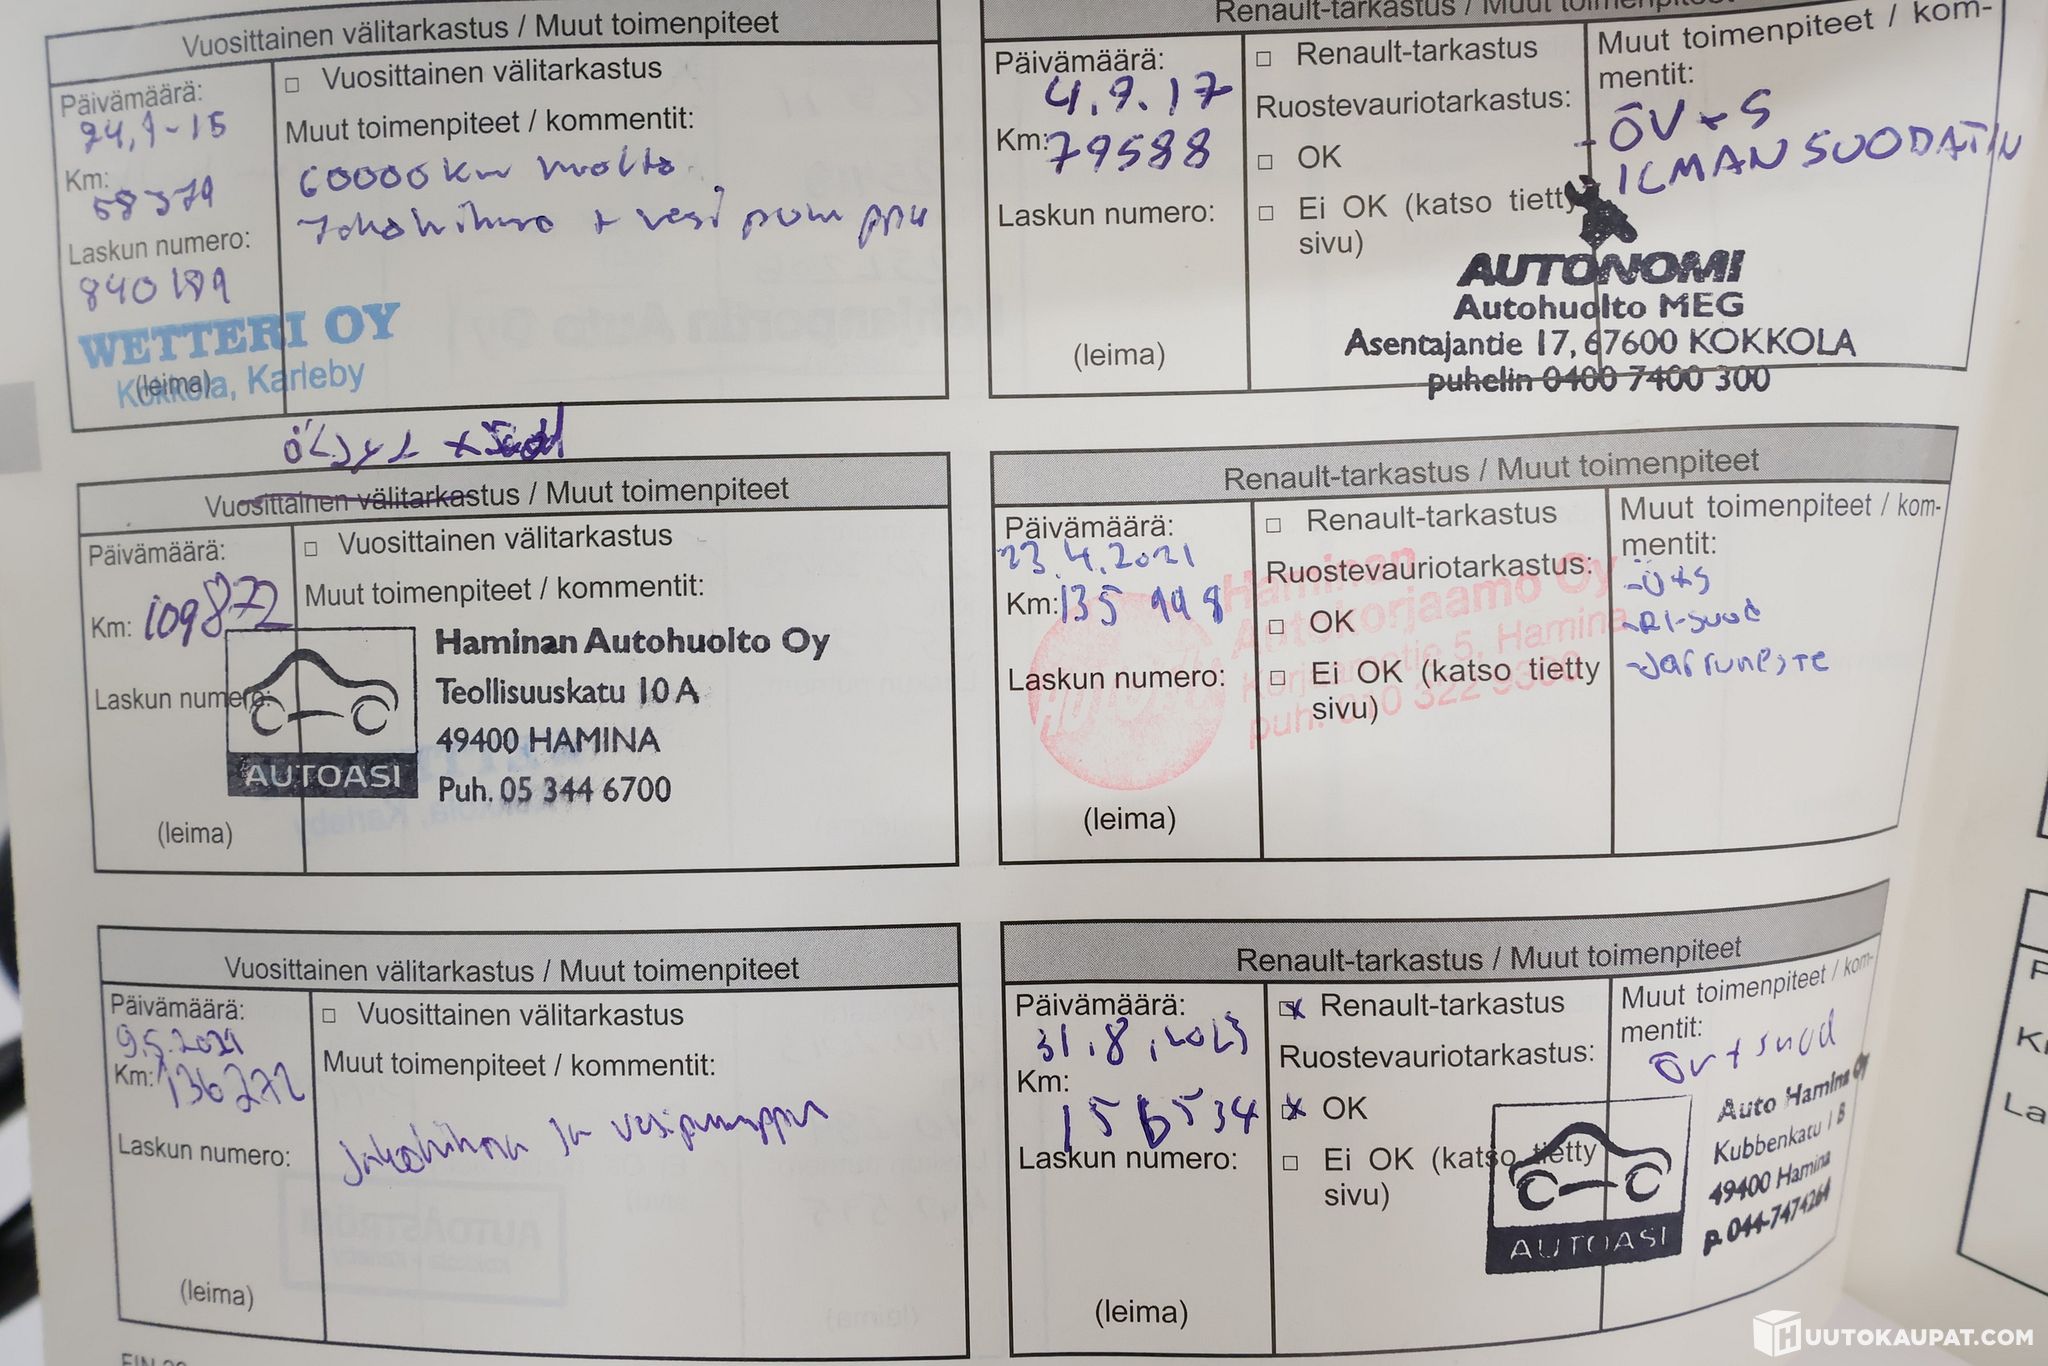 Vuosittainen välitarkastus / Muut toimenpiteet
Päivämäärä:
24,9-15
Km:
58379
Laskun numero:
840189
□ Vuosittainen välitarkastus
Muut toimenpiteet / kommentit:
60000km huolto
Jakohihna + vesi pumppu
WETTERI OY
Kokkola, Karleby
(leima)
Renault-tarkastus / Muut toimenpiteet
Päivämäärä:
4.9.17
Km: 79588
Laskun numero:
(leima)
□ Renault-tarkastus
Ruostevauriotarkastus:
□ OK
□ Ei OK (katso tietty
sivu)
Muut toimenpiteet / kom-
mentit:
- ÖV+S
ILMANSUODATIN
AUTONOMI
Autohuolto MEG
Asentajantie 17, 67600 KOKKOLA
puhelin 0400 7400 300
ÖLJYT + Suod
Vuosittainen välitarkastus / Muut toimenpiteet
Päivämäärä:
Km: 109872
Laskun numero:
(leima)
□ Vuosittainen välitarkastus
Muut toimenpiteet / kommentit:
AUTOASI
Haminan Autohuolto Oy
Teollisuuskatu 10 A
49400 HAMINA
Puh. 05 344 6700
Renault-tarkastus / Muut toimenpiteet
Päivämäärä:
23.4.2021
Km: 135 998
Laskun numero:
(leima)
□ Renault-tarkastus
Ruostevauriotarkastus:
□ OK
□ Ei OK (katso tietty
sivu)
Muut toimenpiteet / kom-
mentit:
-Ö+S
-RI-suod
-Jarruneste
Haminan
Autokorjaamo Oy
Korjaamotie 5, Hamina
puh. 010 322 9300
Vuosittainen välitarkastus / Muut toimenpiteet
Päivämäärä:
9.5.2021
Km: 136272
Laskun numero:
(leima)
□ Vuosittainen välitarkastus
Muut toimenpiteet / kommentit:
Jakohihna ja vesipumppu
Renault-tarkastus / Muut toimenpiteet
Päivämäärä:
31.8.2023
Km:
156534
Laskun numero:
(leima)
☒ Renault-tarkastus
Ruostevauriotarkastus:
☒ OK
□ Ei OK (katso tietty
sivu)
Muut toimenpiteet / kom-
mentit:
öv + suod
AUTOASI
Auto Hamina Oy
Kubbenkatu 1 B
49400 Hamina
p. 044-7474264
HUUTOKAUPAT.COM